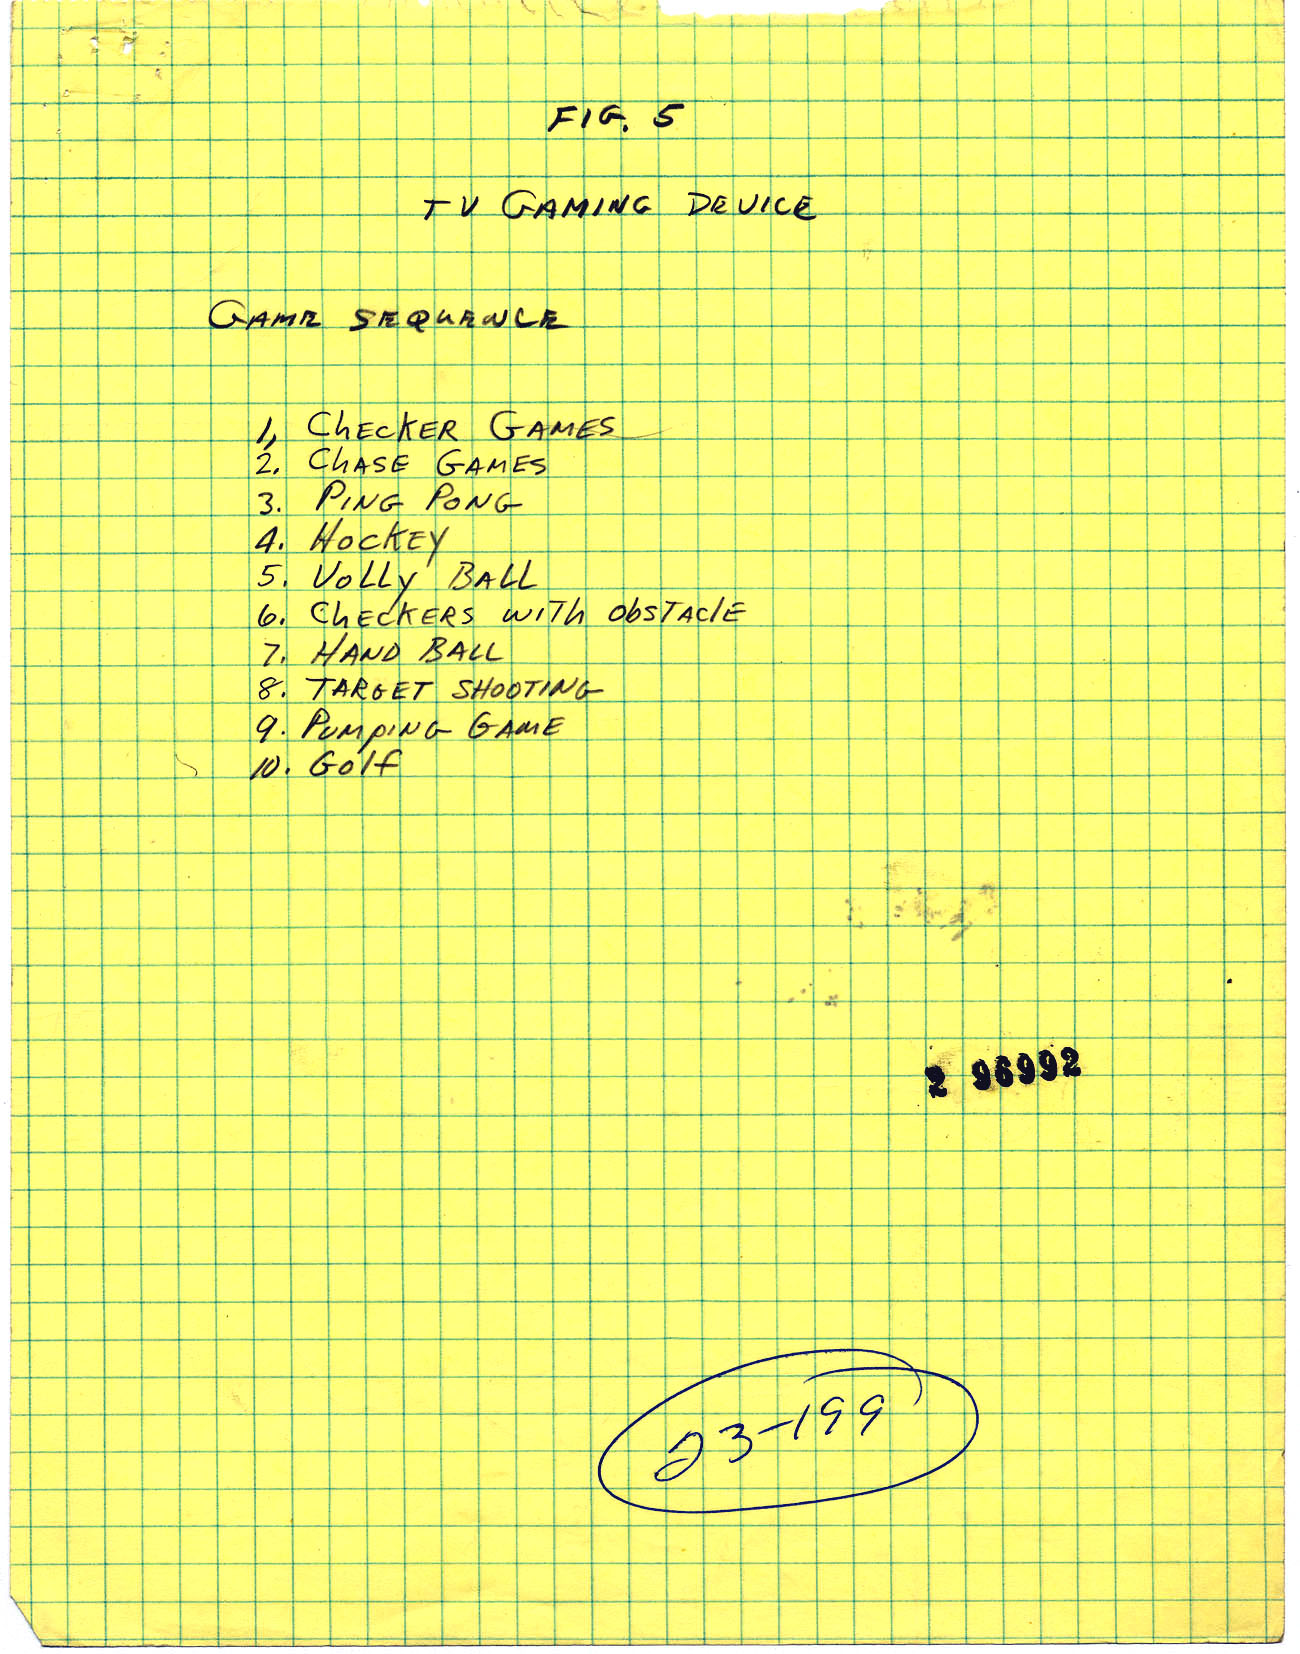 FIG. 5
TV GAMING DEVICE
GAME SEQUENCE
1, ChECKER GAMES
2. ChASE GAMES
3. PING PONG
4. HOCKEY
5. VOLLY BALL
6. ChECKERS WITh ObSTAClE
7. HAND BALL
8. TARGET SHOOTING
9. PUMPING GAME
10. Golf
2 96992
23-199